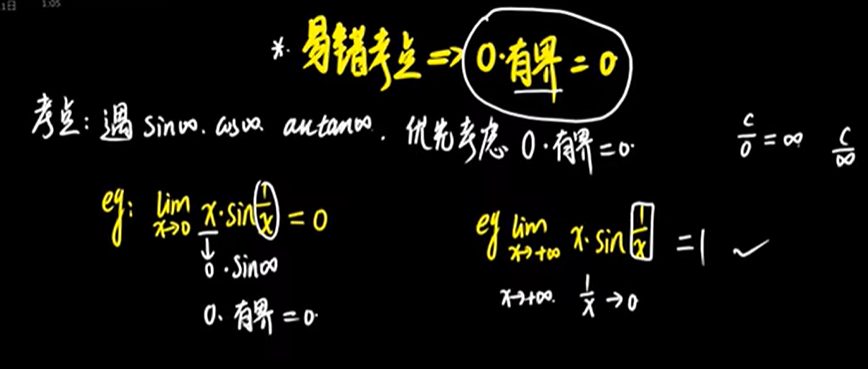 1日 1:05
*. 易错考点 => 0·有界 = 0
考点: 遇 sin∞. cos∞. arctan∞. 优先考虑 0·有界=0. c/0 = ∞ c/∞
eg: lim x→0 x·sin 1/x = 0
↓
0·sin∞
0. 有界 = 0.
eg lim x→+∞ x·sin 1/x = 1 ✓
x→+∞. 1/x → 0